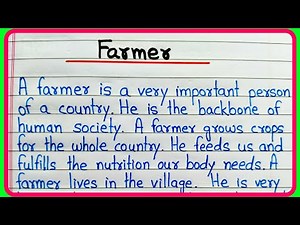 Farmer
A farmer is a very important person
of a country. He is the backbone of
human society. A farmer grows crops
for the whole country. He feeds us and
fulfills the nutrition our body needs. A
farmer lives in the village. He is very